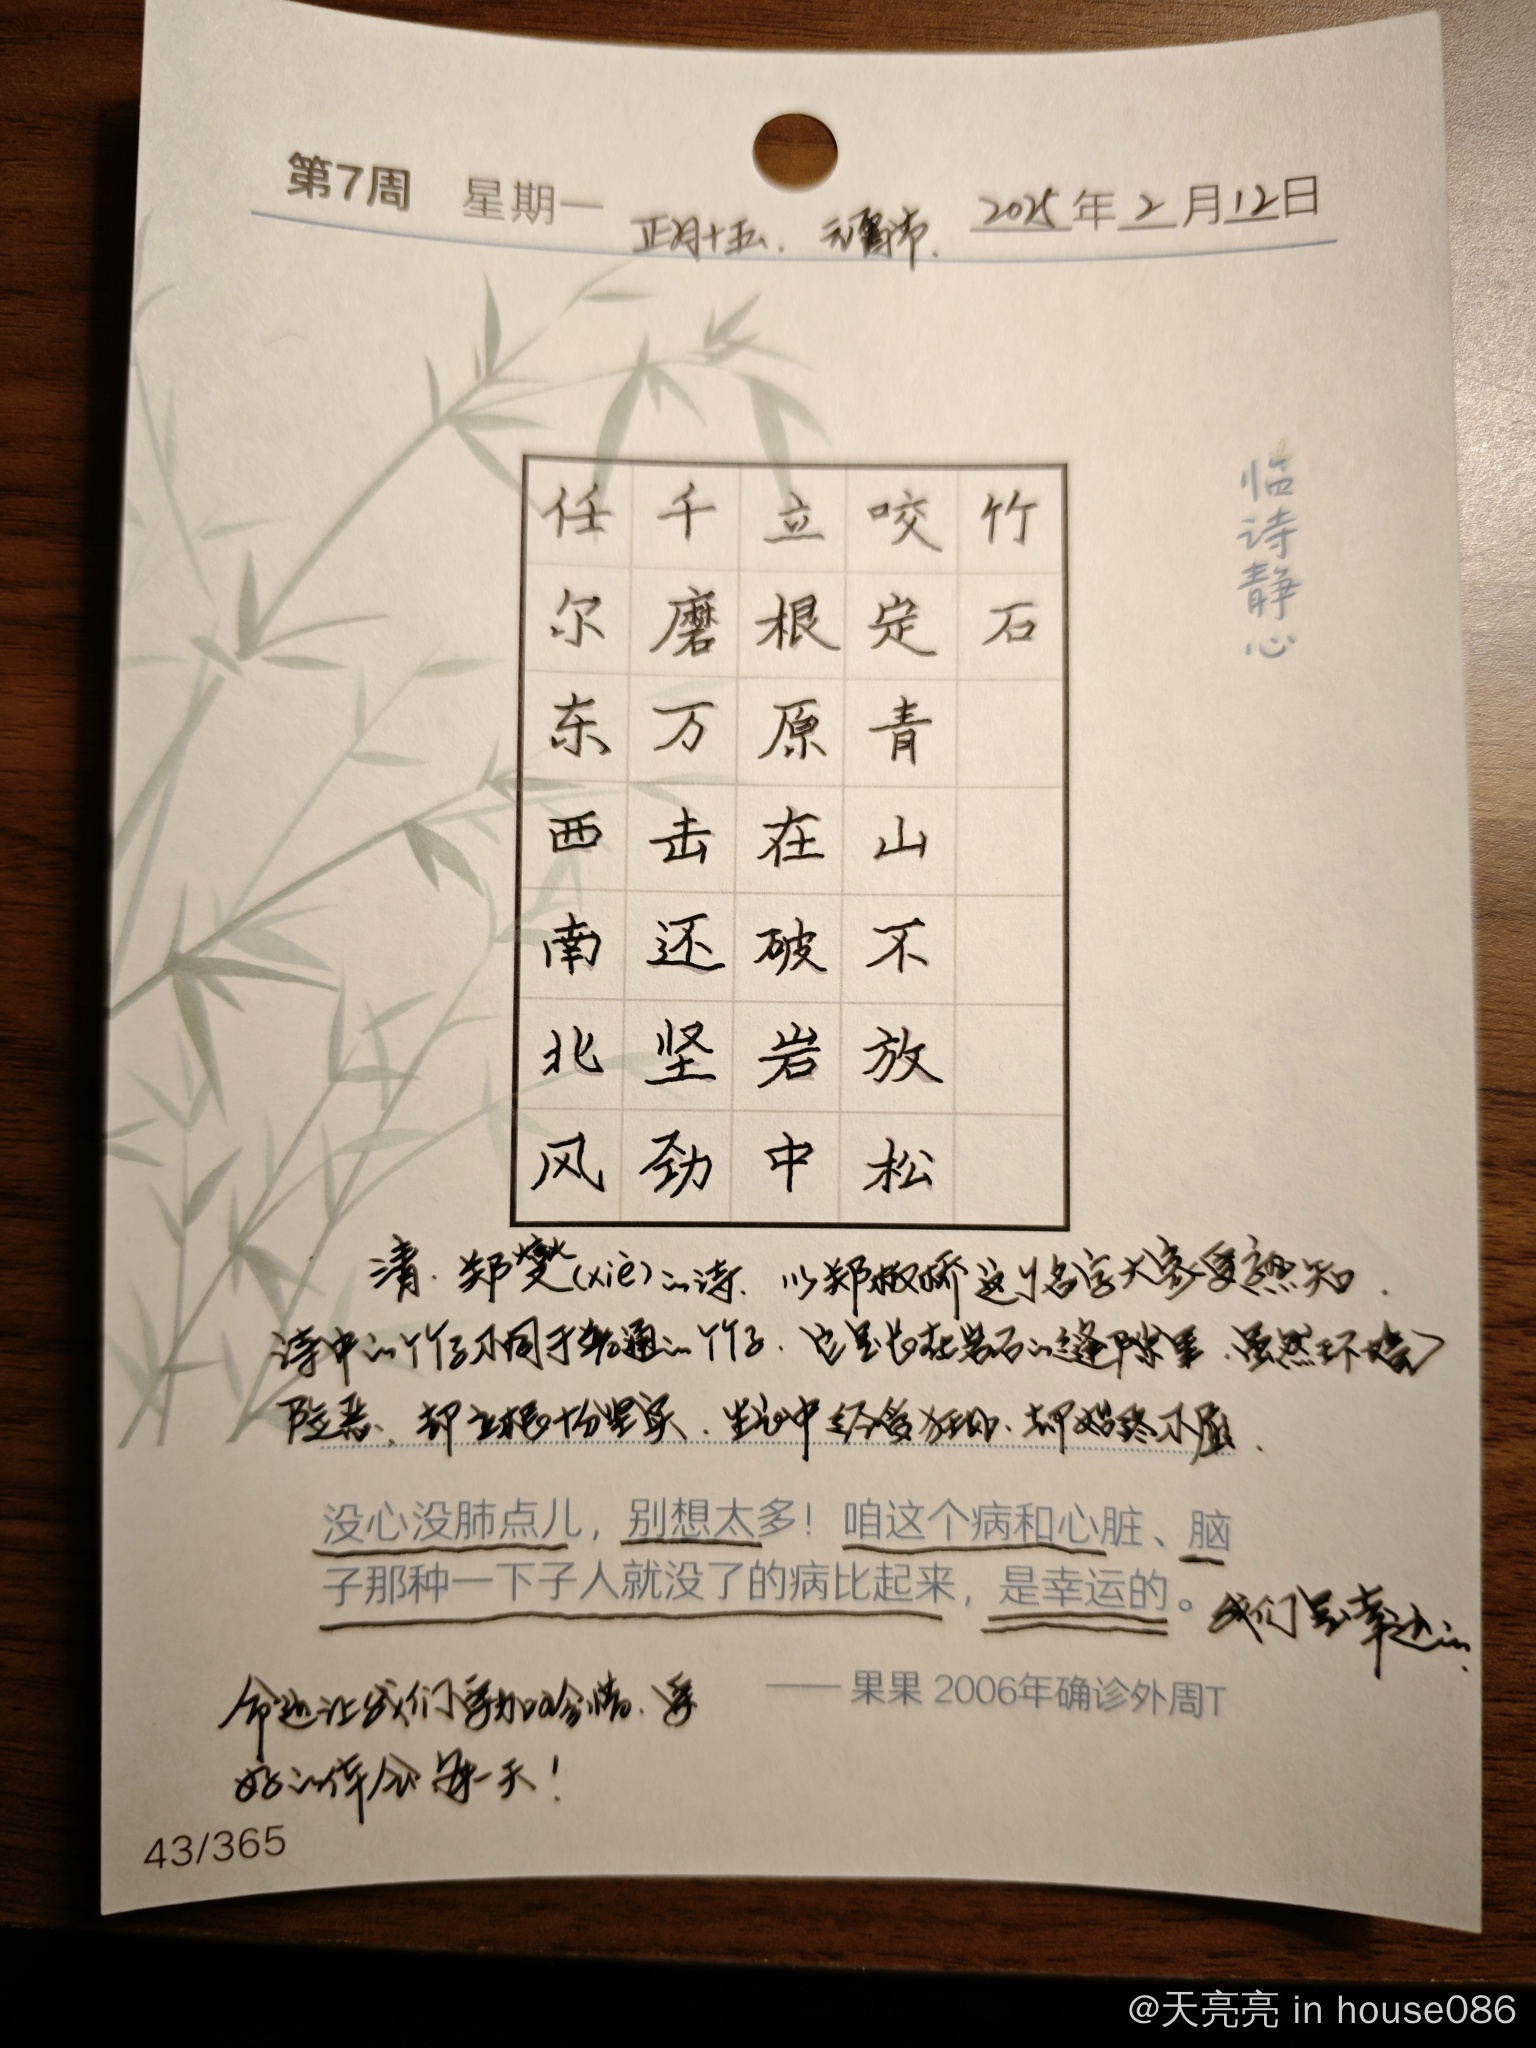 第7周 星期一 正月十五. 元宵节. 2025年2月12日
临诗静心
竹石
咬定青山不放松
立根原在破岩中
千磨万击还坚劲
任尔东西南北风
清.郑燮(xiè)的诗. 以郑板桥这个名字大家更熟知.
诗中的竹子不同于普通的竹子.它是长在岩石的缝隙里.虽然环境
险恶、却立根十分坚实.生活中经受狂风.却始终不屈.
没心没肺点儿，别想太多！咱这个病和心脏、脑
子那种一下子人就没了的病比起来，是幸运的。
我们是幸运的.
—— 果果 2006年确诊外周T
命运让我们更加珍惜.更
好的体会每一天！
43/365
@天亮亮 in house086